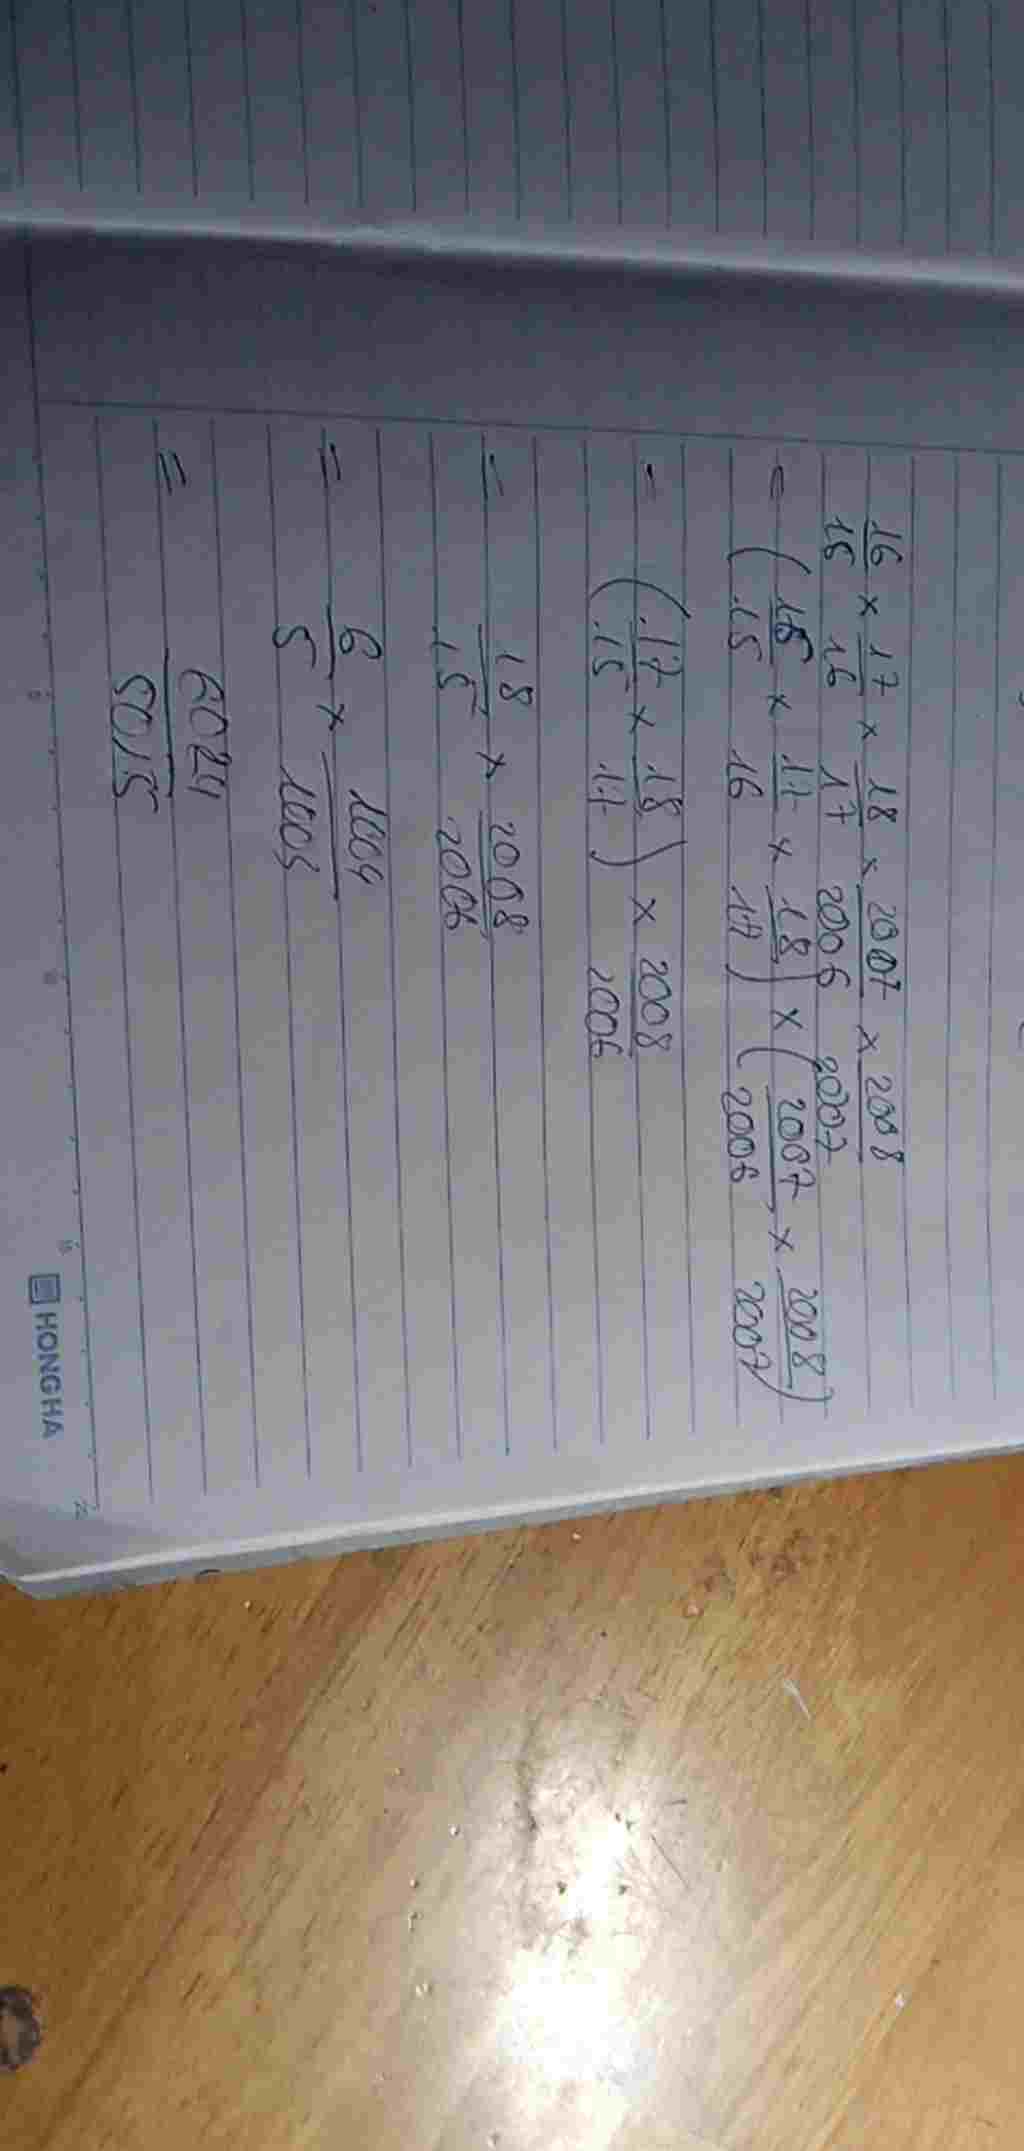 16/15 × 17/16 × 18/17 × 2007/2006 × 2008/2007
= (16/15 × 17/16 × 18/17) × (2007/2006 × 2008/2007)
= (17/15 × 18/17) × 2008/2006
= 18/15 × 2008/2006
= 6/5 × 1004/1003
= 6024/5015
HONG HA